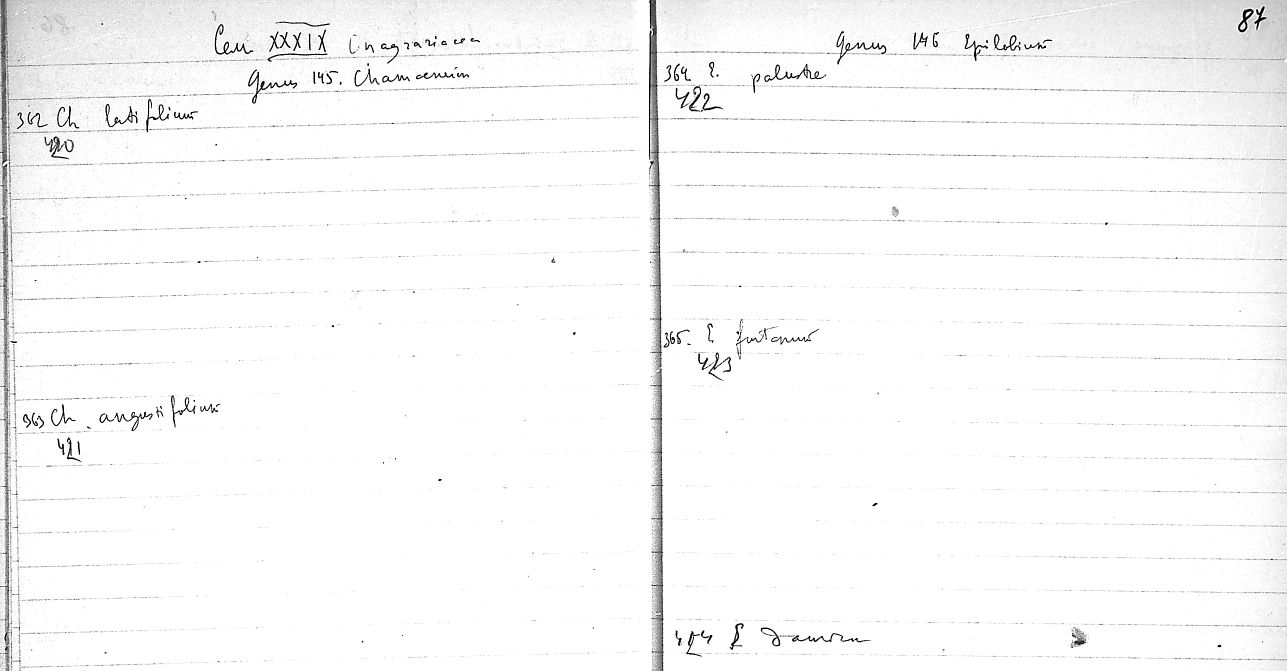 XXXIX Onagrariaceae
Genus 145. Chamaenerium
362 Ch latifolium
420
363 Ch. angustifolium
421
87
Genus 146 Epilobium
364 E. palustre
422
365. E fontanum
423
424 E